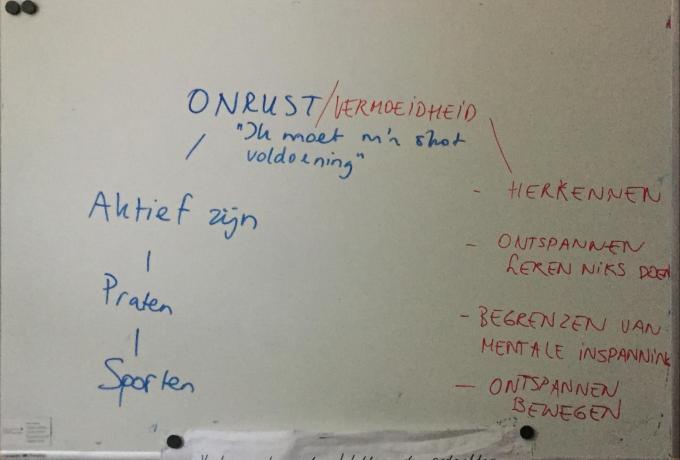 ONRUST/VERMOEIDHEID
"Ik moet m'n shot
voldoening"
Aktief zijn
Praten
Sporten
- HERKENNEN
- ONTSPANNEN
LEREN NIKS DOEN
- BEGRENZEN VAN
MENTALE INSPANNING
- ONTSPANNEN
BEWEGEN